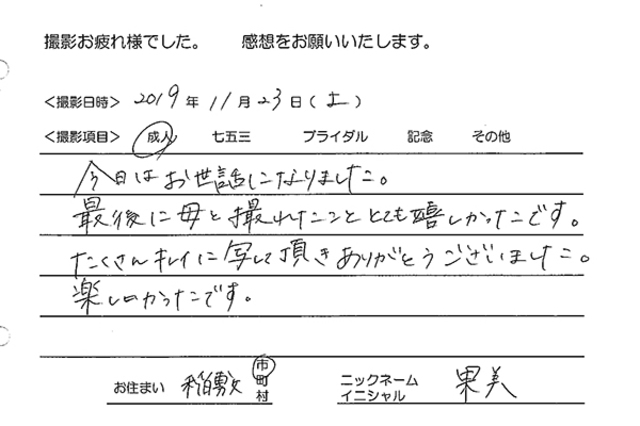 撮影お疲れ様でした。 感想をお願いいたします。
<撮影日時> 2019年11月23日(土)
<撮影項目> 成人 七五三 ブライダル 記念 その他
今日はお世話になりました。
最後に母と撮れたこととても嬉しかったです。
たくさんキレイに写して頂きありがとうございました。
楽しのかったです。
お住まい 稲敷 市町村 ニックネーム イニシャル 果美